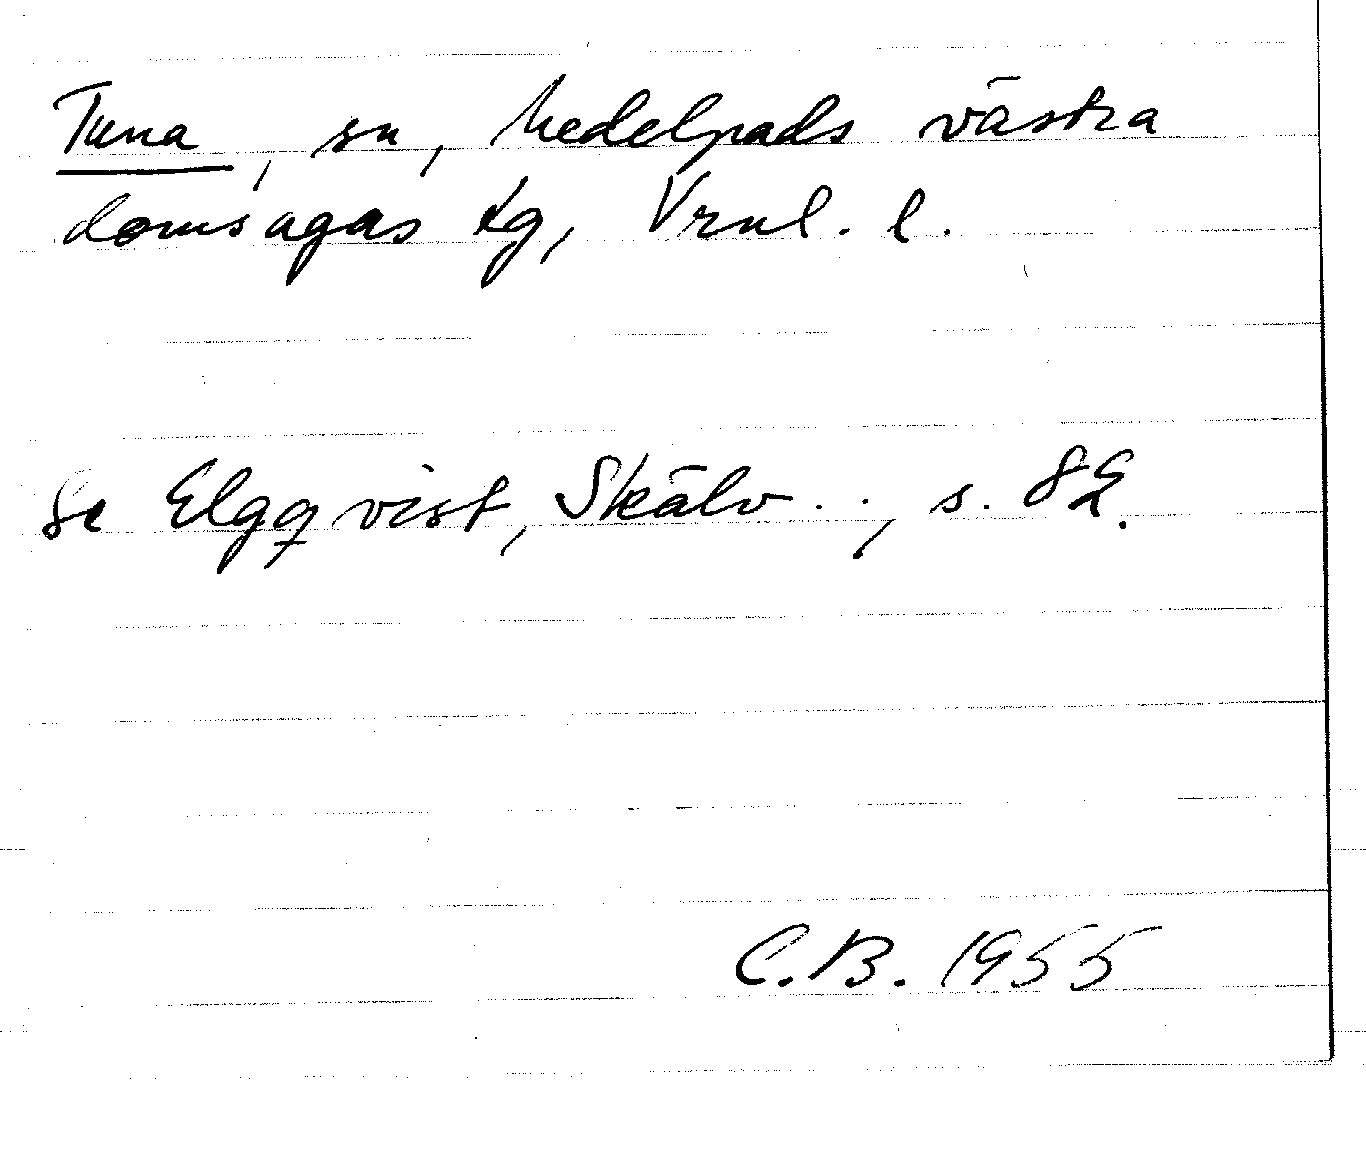 Tuna, sn, Medelpads västra
domsagas tg, Vrnl. l.
Se Elgqvist, Skälv . ., s. 82.
C.B. 1955